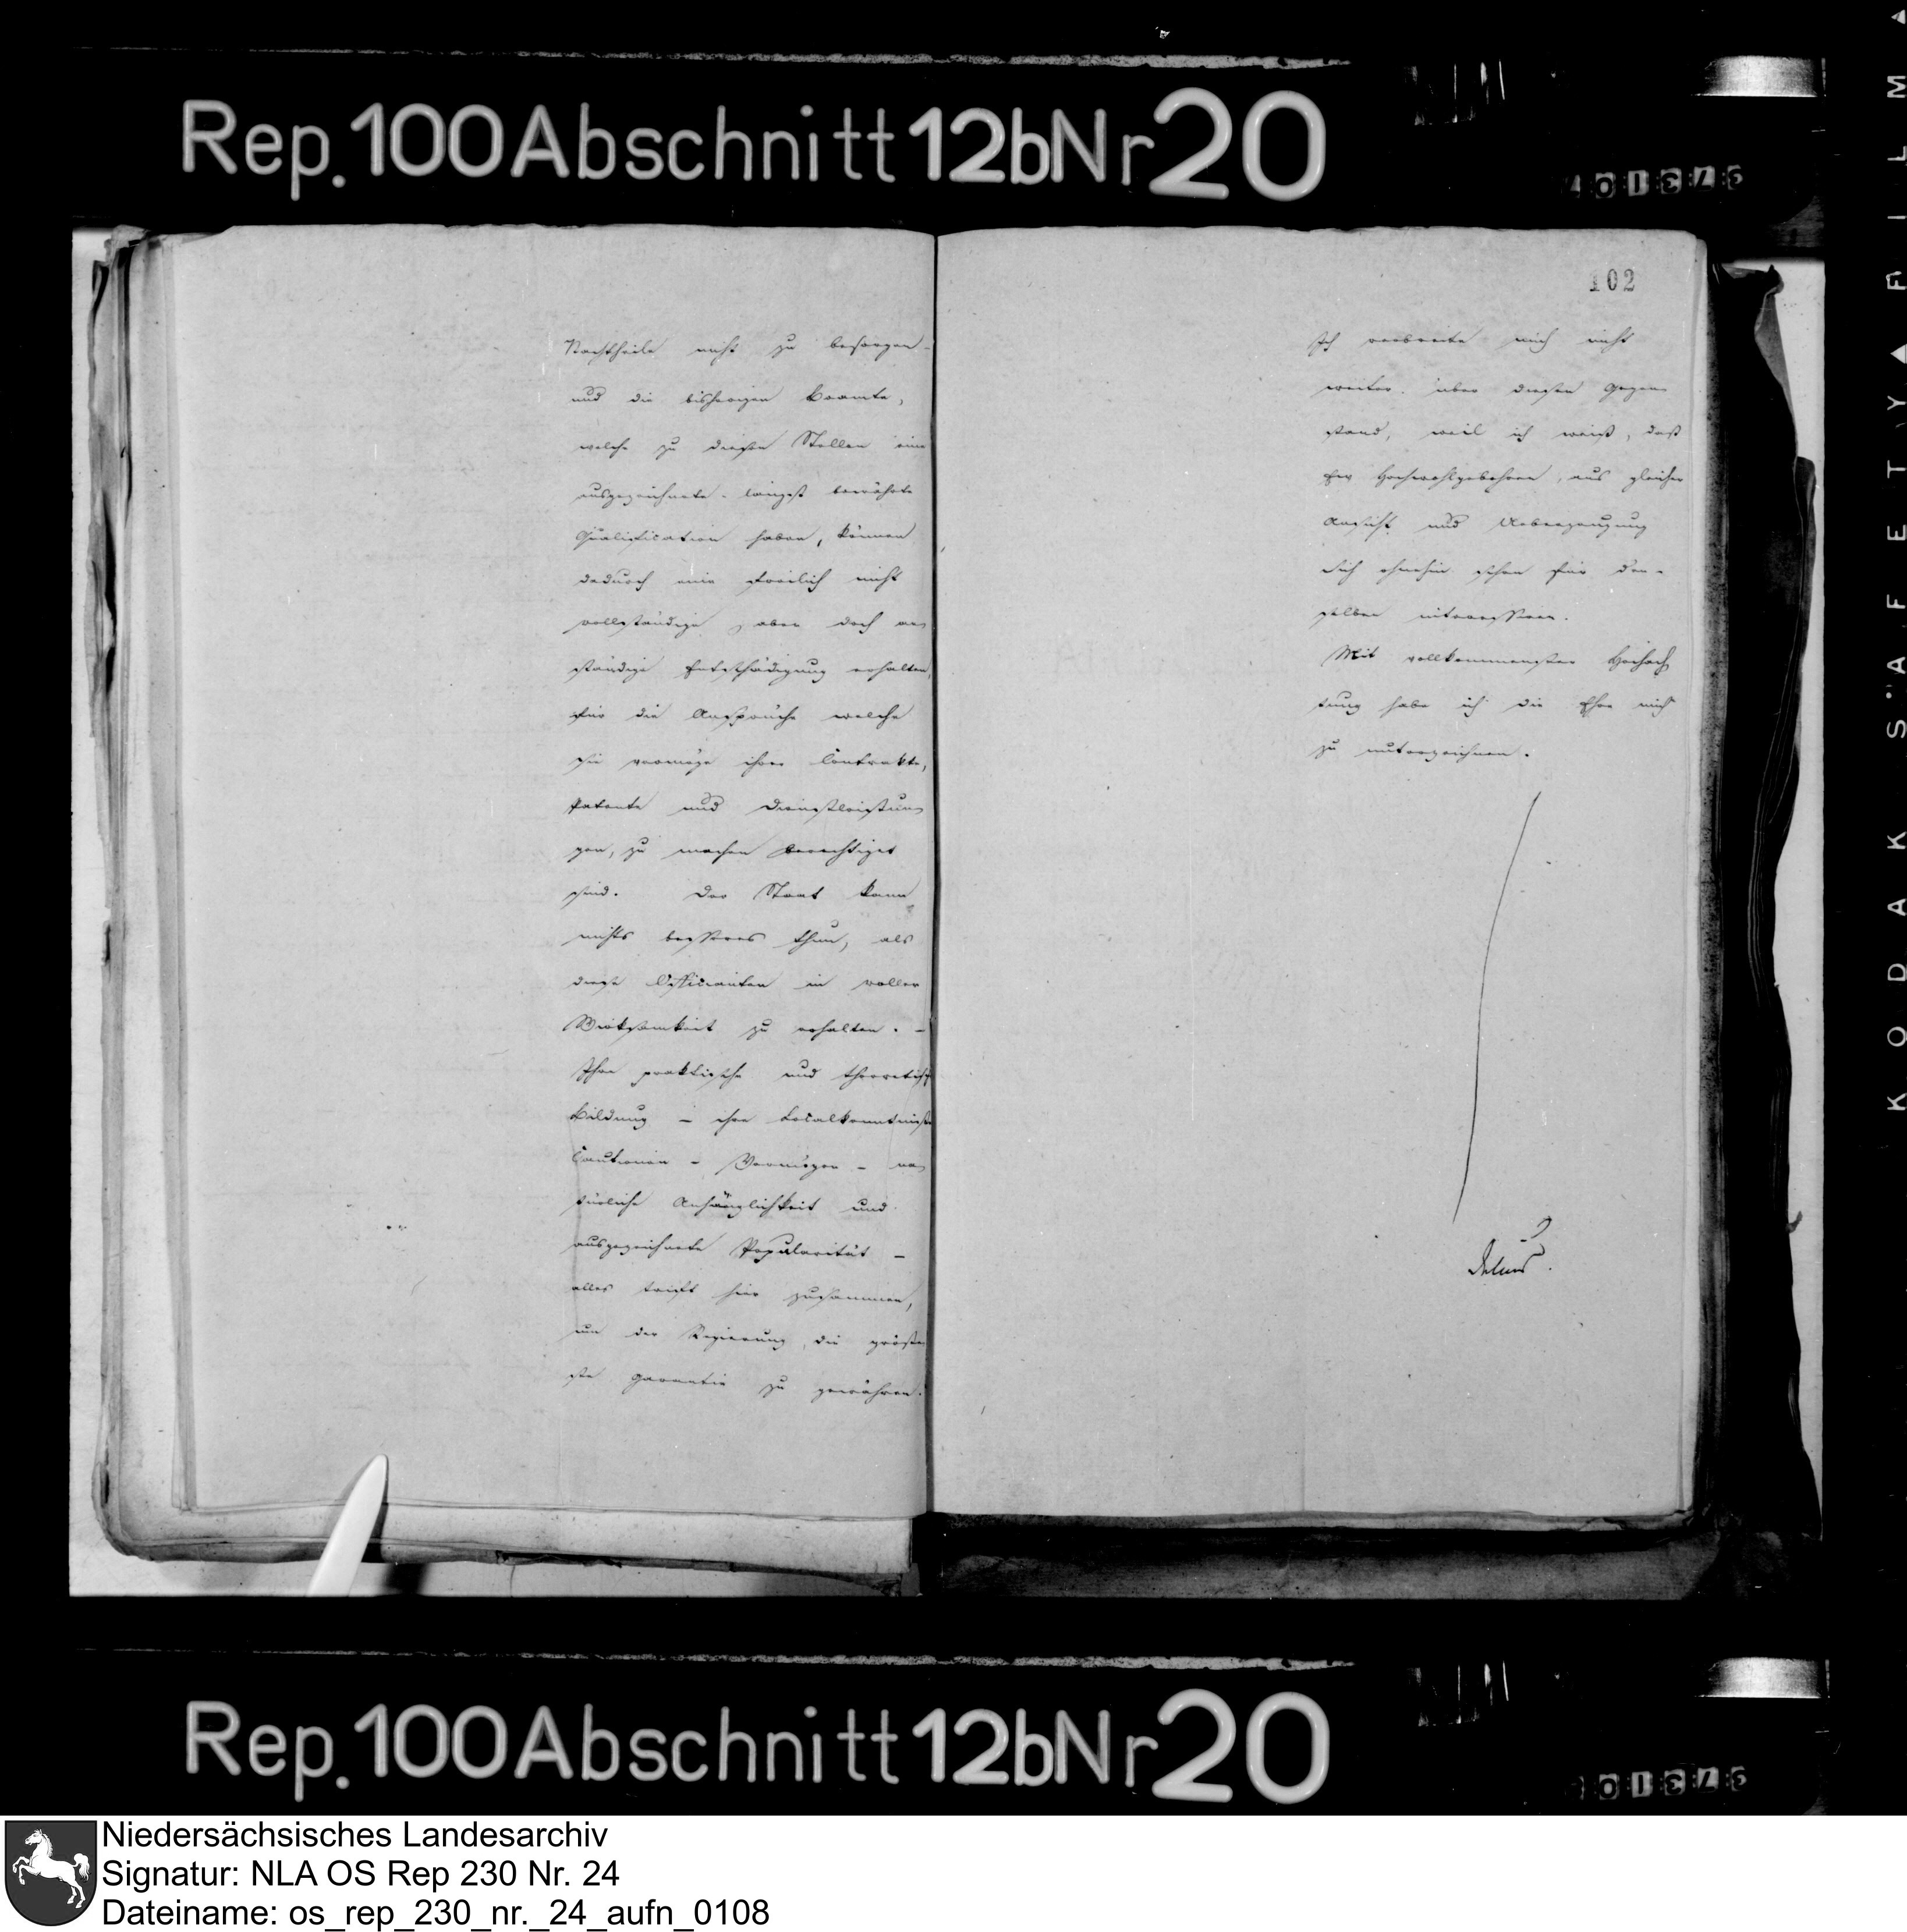 Rep. 100 Abschnitt 12b Nr 20
Nachtheile nicht zu besorgen –
und die bisherigen Beamte,
welche zu diesen Stellen eine
ausgezeichnete längst bewährte
Qualification haben, können
dadurch eine freilich nicht
vollständige, aber doch an
ständige Entschädigung erhalten,
für die Ansprüche welche
sie vermöge ihrer Contrakte,
Patente und Dienstleistun
gen, zu machen berechtiget
sind. Der Staat kann
nichts besseres thun, als
diese Officianten in voller
Wirksamkeit zu erhalten. –
Ihre praktische und theoretische
Bildung – ihre Localkenntniße
Cautionen – Vermögen – na
türliche Anhänglichkeit und
ausgezeichnete Popularität –
alles trift hier zusammen,
um der Regierung die größe
ste Garantie zu gewähren.
102
Ich verbreite mich nicht
weiter über diesen Gegen
stand, weil ich weiß, daß
Ew Hochwohlgebohren, aus gleicher
Ansicht und Ueberzeugung
sich ohnehin schon für den-
selben interessiren.
Mit vollkommenster Hochach
tung habe ich die Ehre mich
zu unterzeichnen.
Delius.
Rep. 100 Abschnitt 12b Nr 20
KODAK SAFETY FILM
Niedersächsisches Landesarchiv
Signatur: NLA OS Rep 230 Nr. 24
Dateiname: os_rep_230_nr._24_aufn_0108